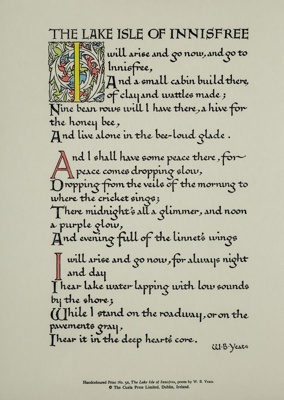 THE LAKE ISLE OF INNISFREE
I will arise and go now, and go to
Innisfree,
And a small cabin build there,
of clay and wattles made;
Nine bean rows will I have there, a hive for
the honey bee,
And live alone in the bee-loud glade.
And I shall have some peace there, for
peace comes dropping slow,
Dropping from the veils of the morning to
where the cricket sings;
There midnight's all a glimmer, and noon
a purple glow,
And evening full of the linnet's wings
I will arise and go now, for always night
and day
I hear lake water lapping with low sounds
by the shore;
While I stand on the roadway, or on the
pavements gray,
I hear it in the deep heart's core.
W·B·Yeats
Handcoloured Print No. 50, The Lake Isle of Innisfree, poem by W. B. Yeats
© The Cuala Press Limited, Dublin, Ireland.